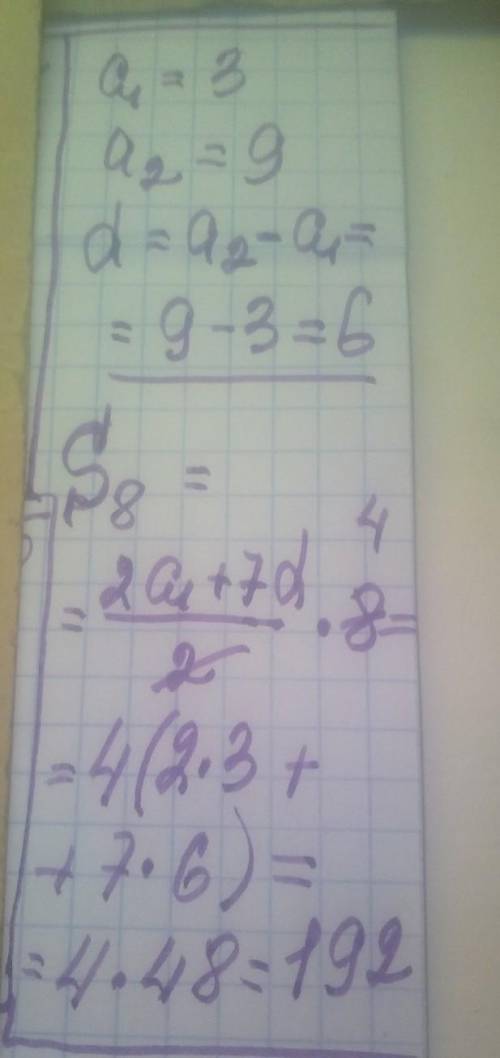 a₁ = 3
a₂ = 9
d = a₂ - a₁ =
= 9 - 3 = 6
S₈ =
4
= 2a₁ + 7d / 2 · 8 =
= 4(2·3 +
+ 7·6) =
= 4·48 = 192